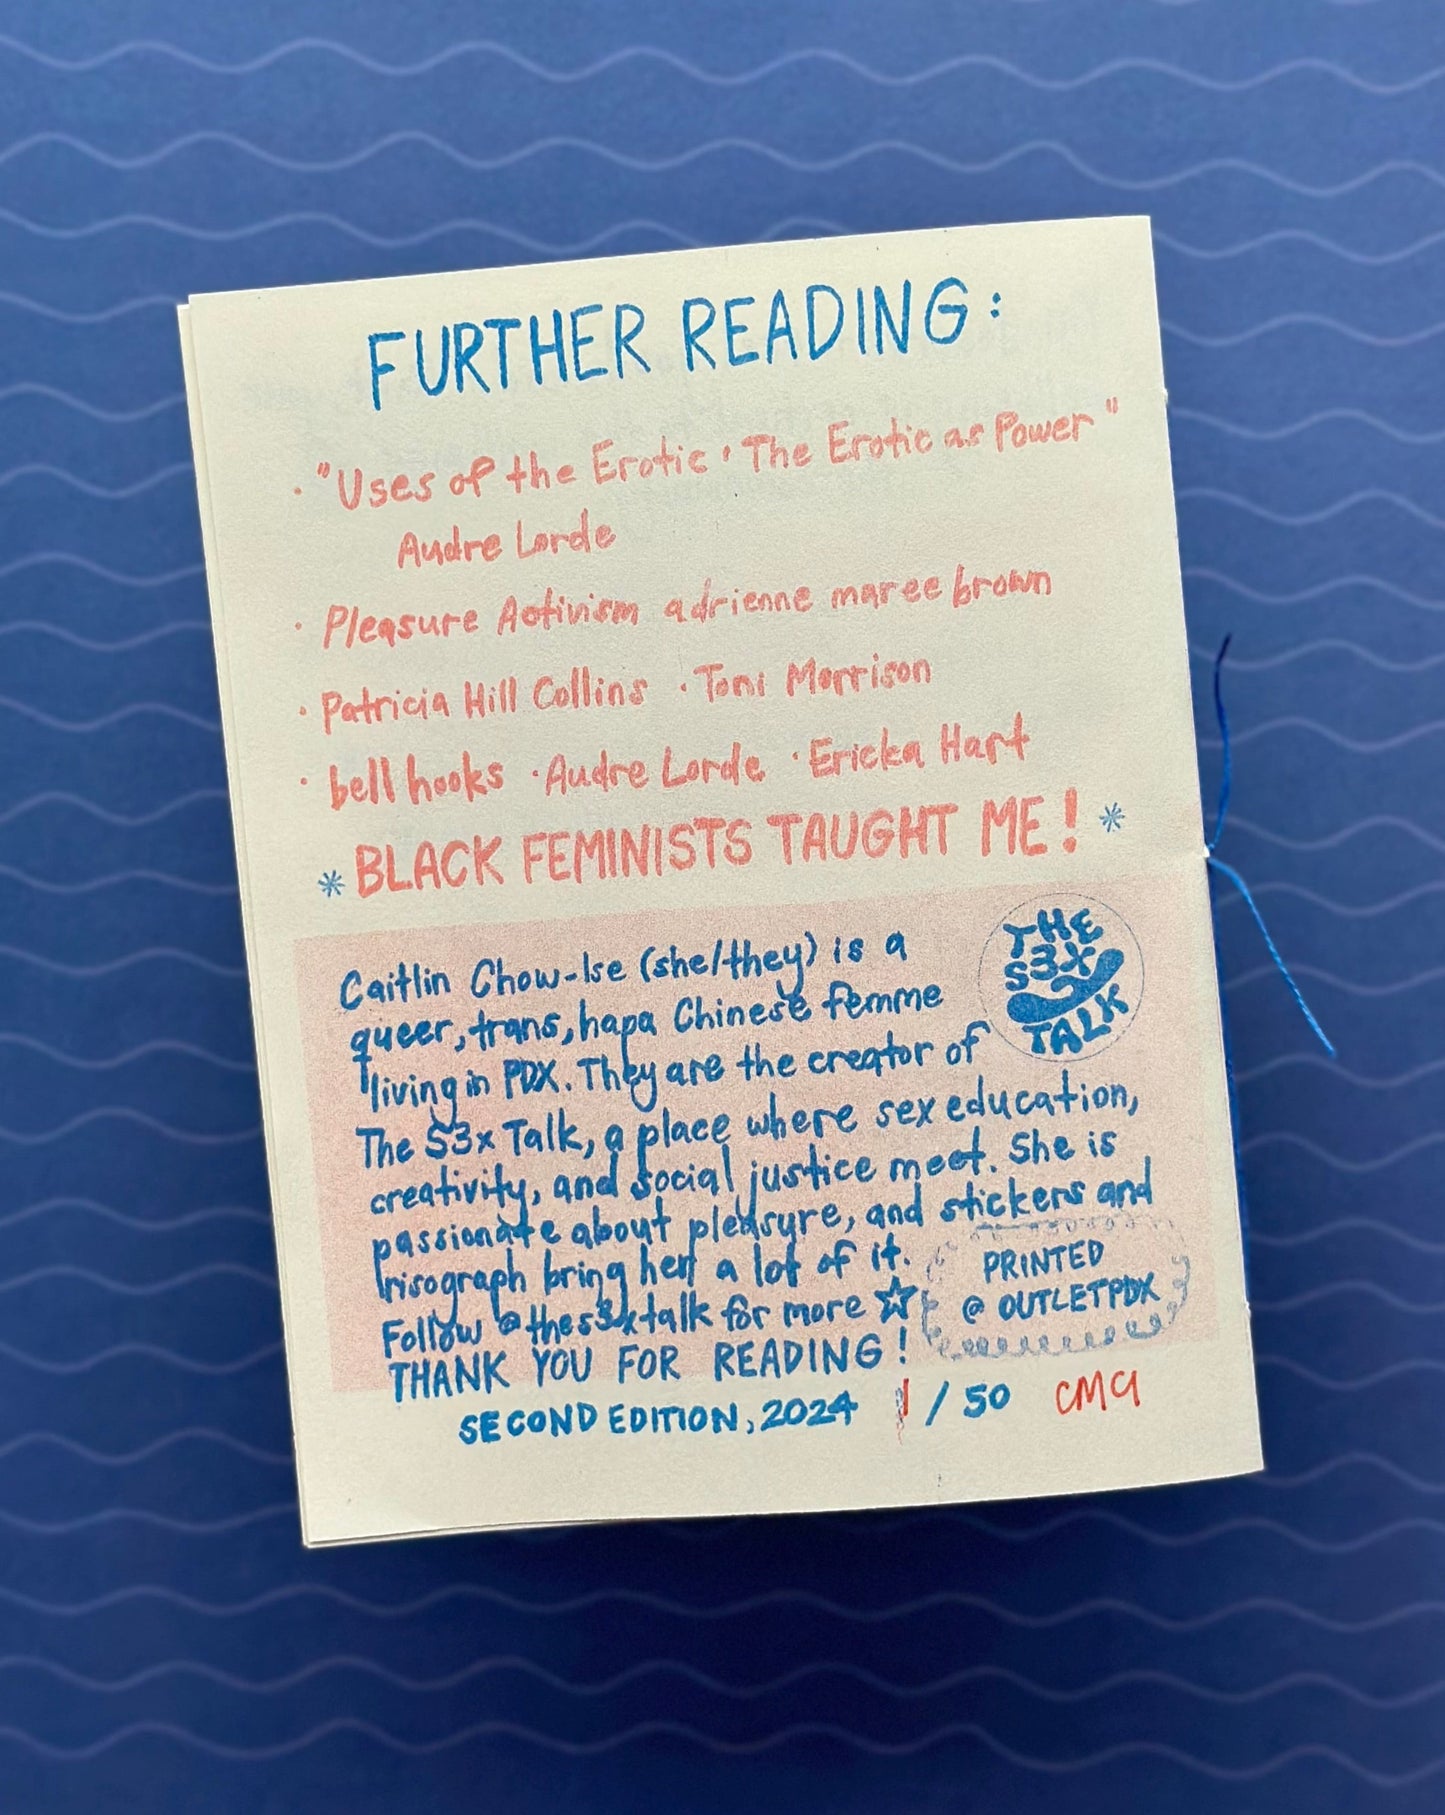 FURTHER READING:
· "Uses of the Erotic · The Erotic as Power"
Audre Lorde
· Pleasure Activism adrienne maree brown
· Patricia Hill Collins · Toni Morrison
· bell hooks · Audre Lorde · Ericka Hart
* BLACK FEMINISTS TAUGHT ME! *
THE
S3X
TALK
Caitlin Chow-Ise (she/they) is a
queer, trans, hapa Chinese femme
living in PDX. They are the creator of
The S3x Talk, a place where sex education,
creativity, and social justice meet. She is
passionate about pleasure, and stickers and
risograph bring her a lot of it.
Follow @thes3xtalk for more ☆
PRINTED
@ OUTLETPDX
THANK YOU FOR READING!
SECOND EDITION, 2024 1 / 50